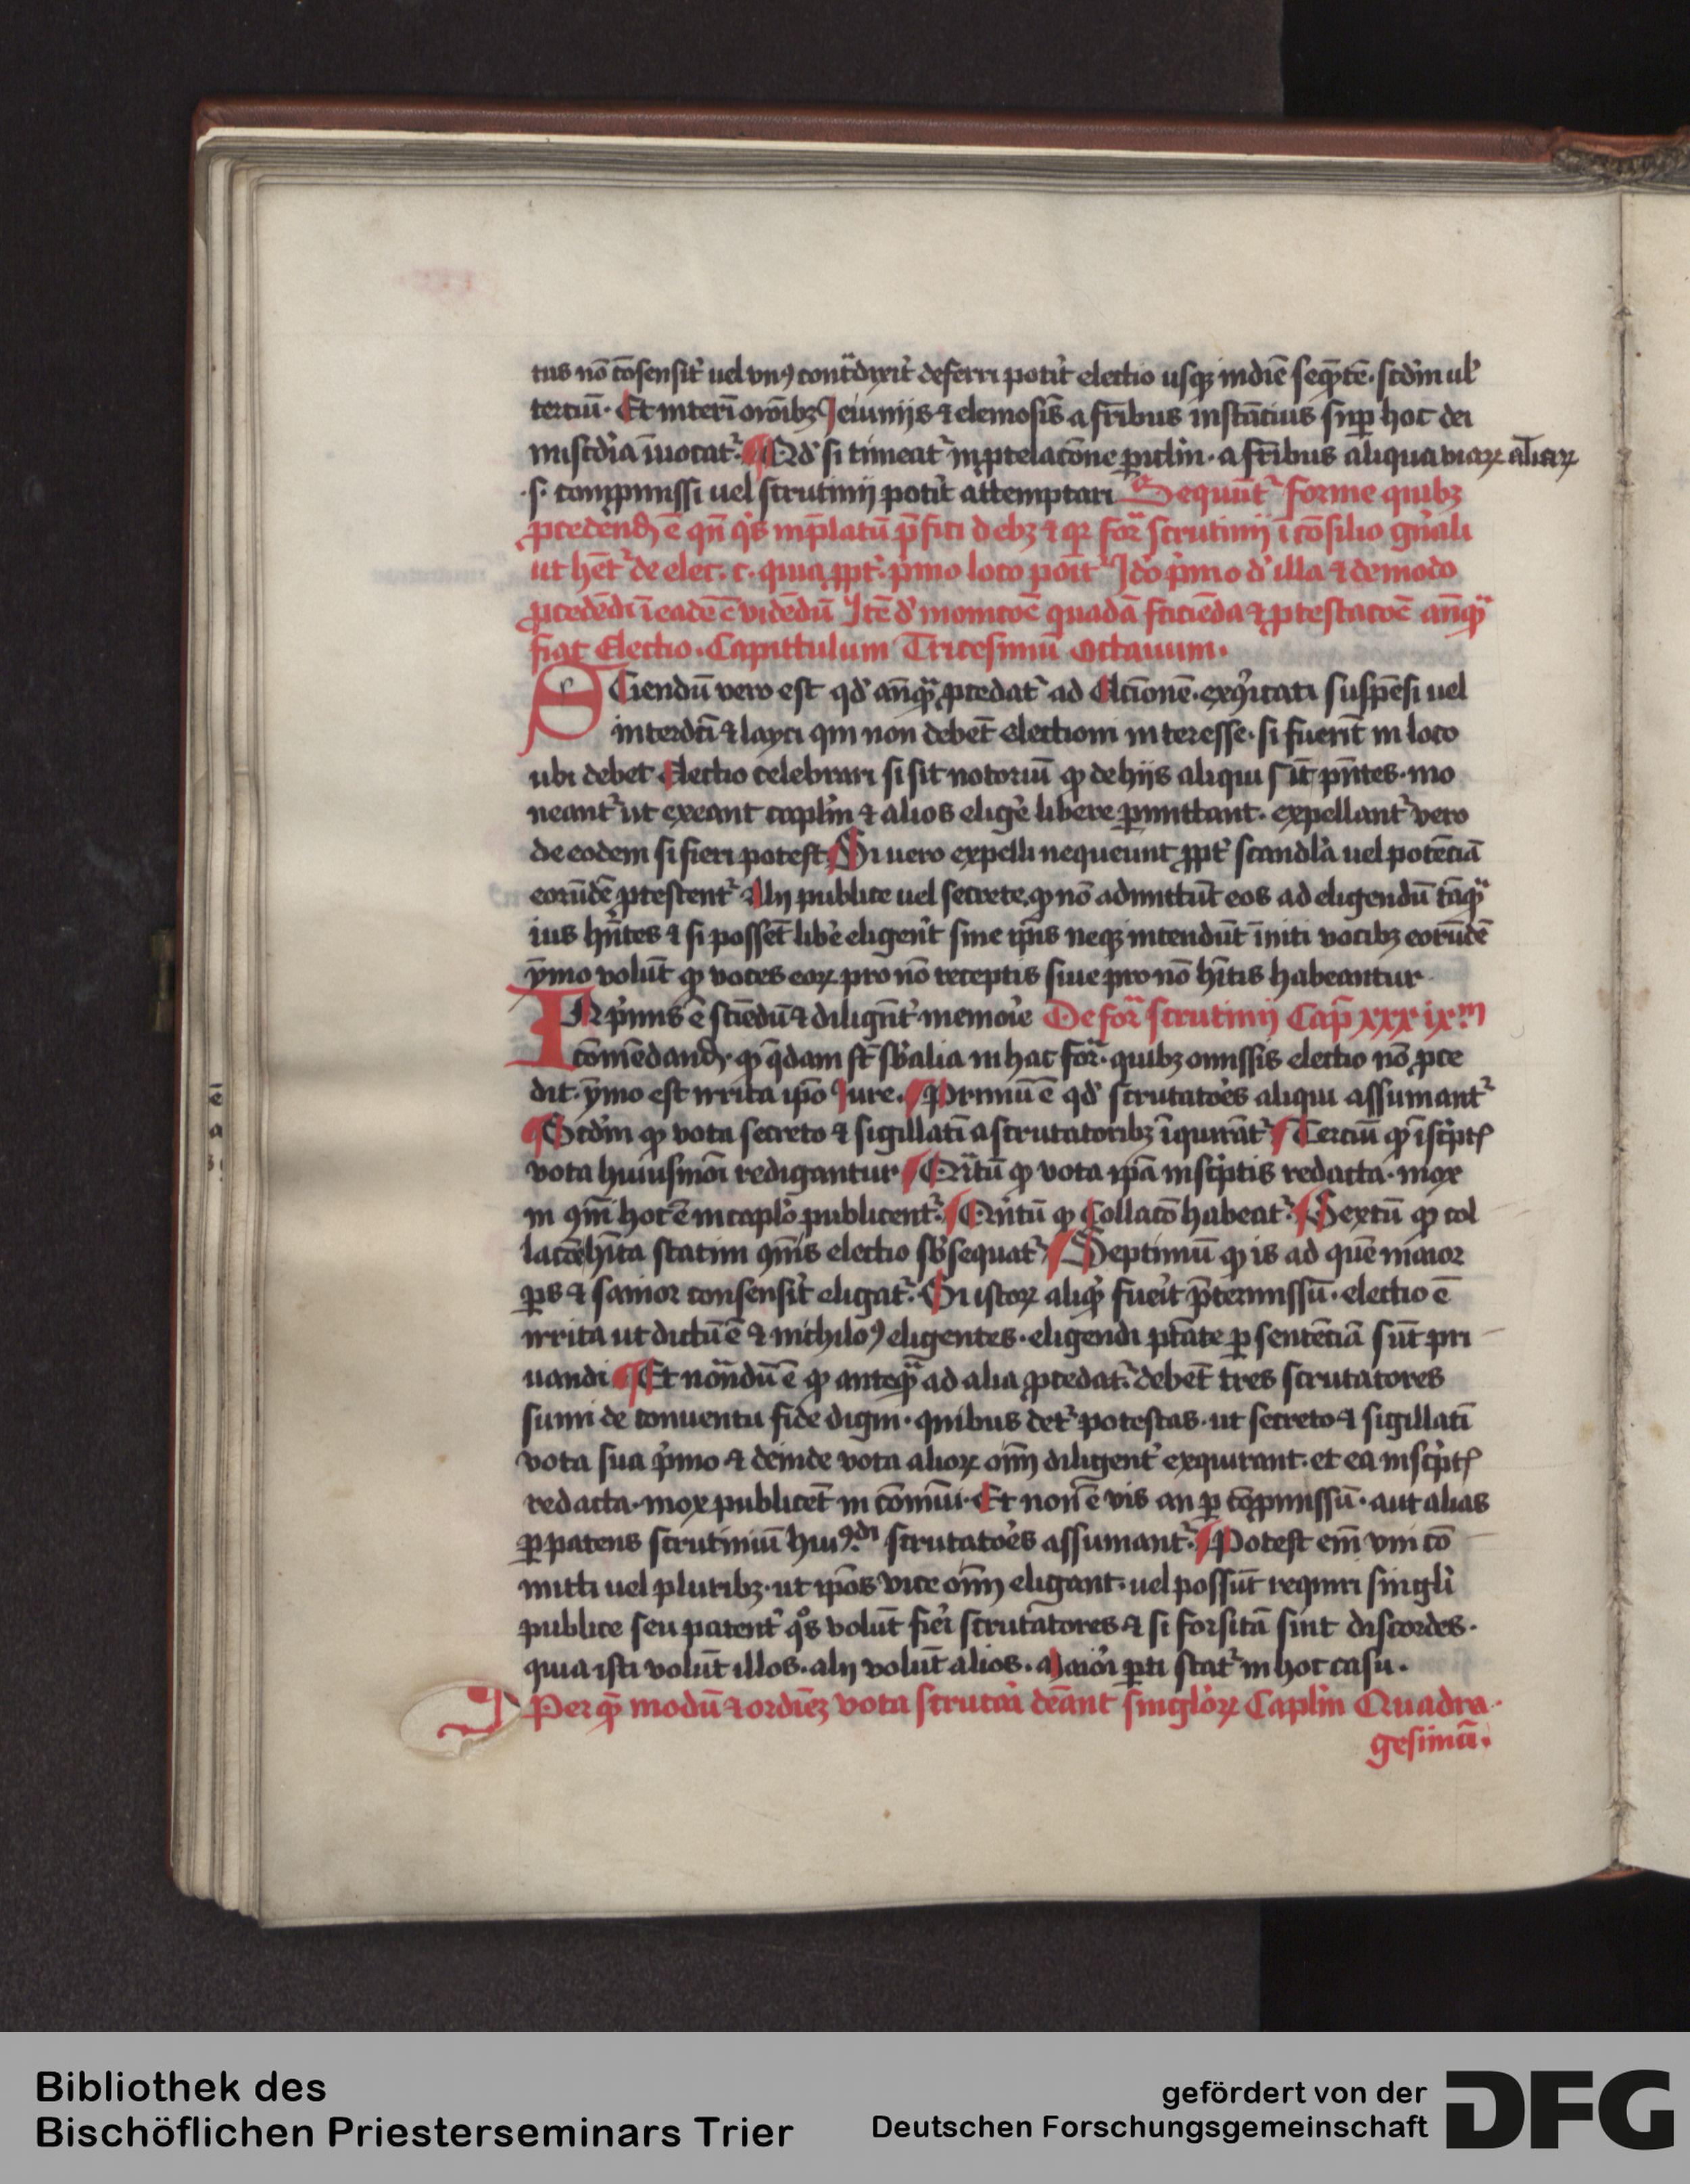 tus nō cōsensit᷑ uel vnꝰ contͣdixit᷑ deferri potit᷑ electio usqꝫ indiē seqn̄tē. scd̓m ul᷑
terciū. Et interī orōnibꝫ Jeiunijs ⁊ elemosīs a fr̄ibus instācius suꝑ hoc dei
misc̓dia īuocat᷑. ¶ Qd̓ si timeat᷑ in ꝓtelacōne ꝑiclm̄. a fr̄ibus aliqua viaꝝ aliaꝝ
.s. cōpromissi uel scrutinij potit᷑ attemptari Sequūt᷑ forme quibꝫ
ꝓcedendū ē qn̄ q̓s in p̄latū p̄fici debꝫ ⁊ qꝛ forͣ scrutinij ī cōsilio gn̄ali
ut hēt᷑ de elec. c. quia ꝓpt᷑. p̓mo loco poīt᷑ Jdo p̓mo d̓ illa ⁊ de modo
ꝓcedēdi ī eadē ē vidēdū Jtē d̓ monicōe quadā faciēda ⁊ ꝓtestacōe an̄qͣ
fiat Electio. Capittulum Tricesimū Octauum.
SCiendū vero est qd̓ an̄qͣ ꝓcedat᷑ ad Elcīonē. exꝯicati suspēsi uel
interdc̄i ⁊ layci qui non debēt electioni interesse. si fuerīt in loco
ubi debet Electio celebrari si sit notoriū ꝙ de hijs aliqui sīt pn̄tes. mo
neant᷑ ut exeant caplm̄ ⁊ alios elige᷑ libere ꝑmittant. expellant᷑ vero
de eodem si fieri potest ¶ Si uero expelli nequeunt ꝓpt᷑ scandla᷑ uel potēciā
eorūdē ꝓtestent᷑ Alij publice uel secrete, ꝙ nō admittūt eos ad eligendū tāqͣ
ius hn̄tes ⁊ si possēt libe᷑ eligen̄t sine ip̄is neqꝫ intendūt īniti vocibꝫ eorūdē
ȳmo volūt ꝙ voces eoꝝ pro nō receptis siue pro nō hītis habeantur
IN p̓mis ē sciēdū ⁊ diligēt᷑ memoīe De forͣ scrutinij Cap̄ xxx ix.m
cōmēdandū. ꝙ q̄dam st̄ sb̓alia in hac forͣ. quibꝫ omissis electio nō ꝓce
dit. ȳmo est irrita ip̄o Jure. ¶ Primū ē qd̓ scrutatoēs aliqui assumant᷑
¶ Scd̓m ꝙ vota secreto ⁊ sigillatī a scrutatoribꝫ īquirāt᷑ ¶ Terciū ꝙ ī sc̓ptꝭ
vota huiusmōi redigantur ¶ Qͣrtū ꝙ vota ip̄a in sc̓ptis redacta. mox
in ꝯm̄i hoc ē in caplo᷑ publicent᷑. ¶ Qin̓tū ꝙ Collacō habeat᷑. ¶ Sextū ꝙ col
lacōe hīta statim ꝯm̄is electio sb̓sequat᷑ ¶ Septimū ꝙ is ad quē maior
ꝑs ⁊ sanior consensit᷑ eligat᷑. Si istoꝝ aliqd̓ fueīt p̄termissū. electio ē
irrita ut dictū ē ⁊ nichiloꝰ eligentes. eligendi ptāte ꝑ sentēciā sūt pri
uandi ¶ Et notͣndū ē ꝙ anteqͣ ad alia ꝓcedat᷑. debēt tres scrutatores
sumi de conuentu fide digni. quibus det᷑ potestas. ut secreto ⁊ sigillatī
vota sua p̓mo ⁊ deinde vota alioꝝ oīm diligent᷑ exquirant. et ea in sc̓ptꝭ
redacta. mox publicēt in cōmūi. Et non ē vis an ꝑ cōpromissū. aut alias
ꝑ patens scrutiniū huiꝰdi scrutatoēs assumant᷑. ¶ Potest em̄ vni cō
mitti uel pluribꝫ. ut ip̄os vice oīm eligant. uel possūt requiri singli᷑
publice seu patent᷑ qͦs volūt fiei᷑ scrutatores ⁊ si forsitā sint discordes.
quia isti volūt illos. alij volūt alios. Maiōi ꝑti stat᷑ in hoc casu.
Per qē modū ⁊ ordiēꝫ vota scrutai᷑ dēant singloꝝ Caplm̄ Quadra
gesimū.
Bibliothek des
Bischöflichen Priesterseminars Trier
gefördert von der
Deutschen Forschungsgemeinschaft
DFG